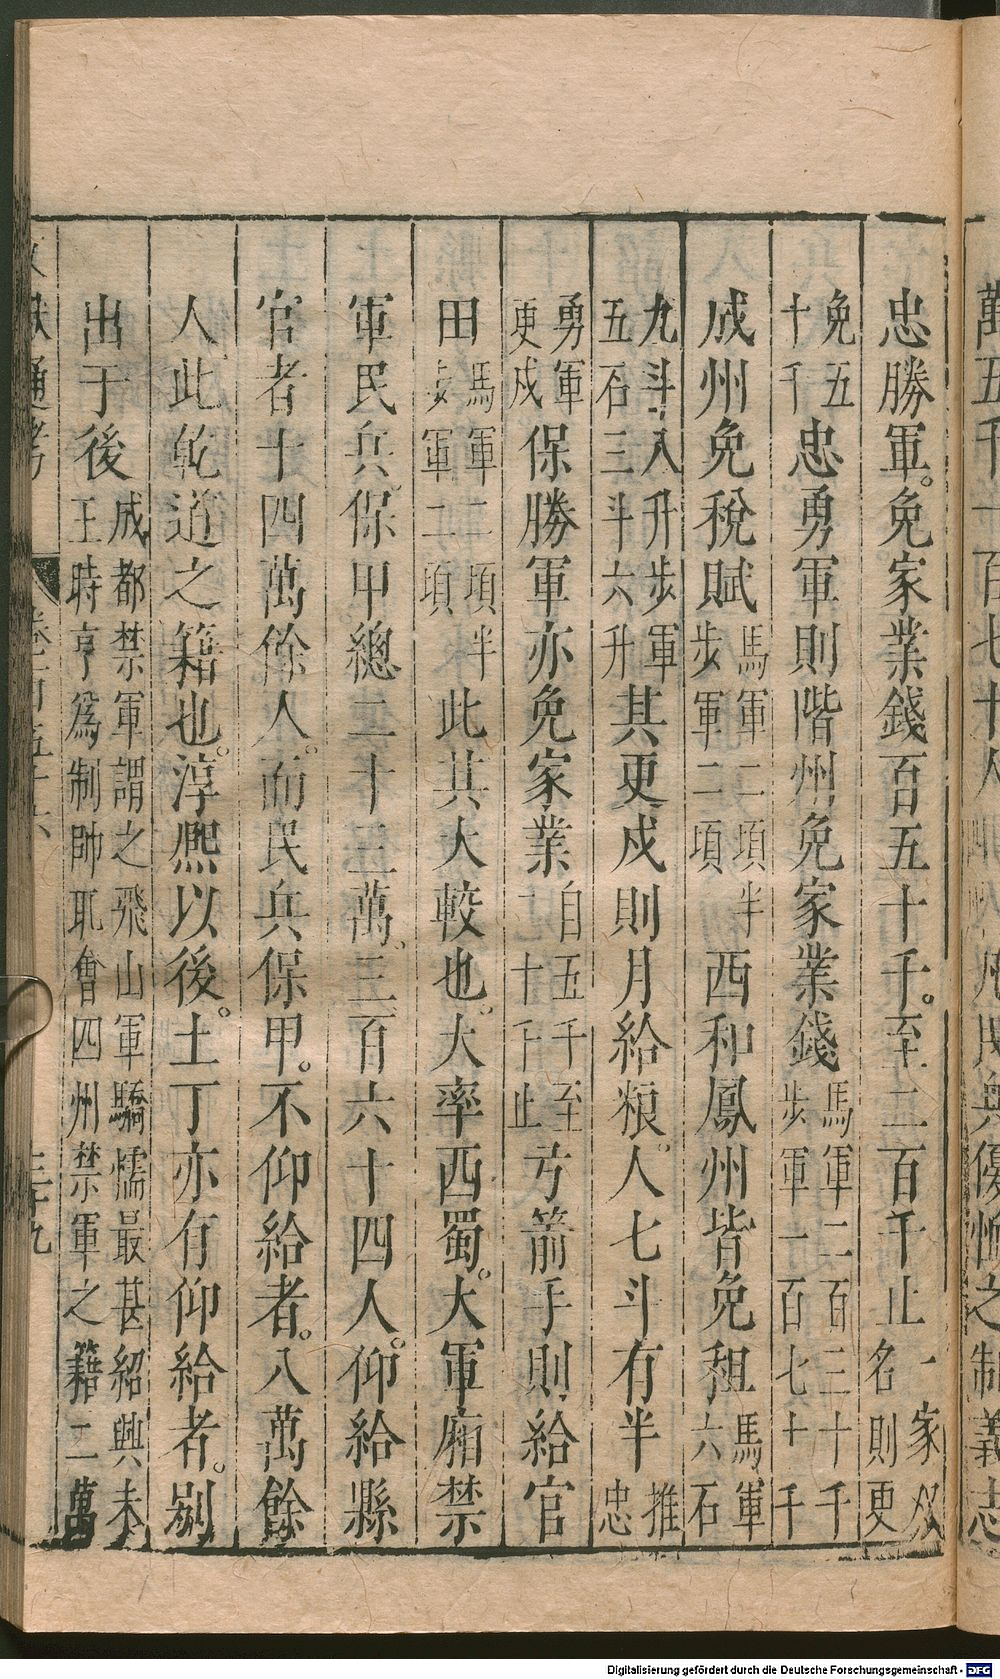 萬五千一百七十人
凡民兵優恤之制義志
忠勝軍。免家業錢百五十千。至二百千止一家双
名則更
免五
十千忠勇軍則階州免家業錢馬軍二百三十千
步軍一百七十千
成州免稅賦馬軍二項半
步軍二項西和鳳州皆免租馬軍
六石
九斗八升步軍
五石三斗六升其更戍則月給粮。人七斗有半推
忠
勇軍
更戍保勝軍亦免家業自五千至
二十千止弓箭手則給官
田馬軍二項半
步軍二項此其大較也。大率西蜀。大軍廂禁
軍民兵。保甲總二十三萬。三百六十四人。仰給縣
官者十四萬餘人。而民兵保甲。不仰給者。八萬餘
人此乾道之籍也。淳熙以後。土丁亦有仰給者。剏
出于後成都禁軍謂之飛山軍驕懦最甚紹興末
王時亨爲制帥取會四州禁軍之籍二萬
文獻通考
卷一百五十六
三十九
Digitalisierung gefördert durch die Deutsche Forschungsgemeinschaft - DFG